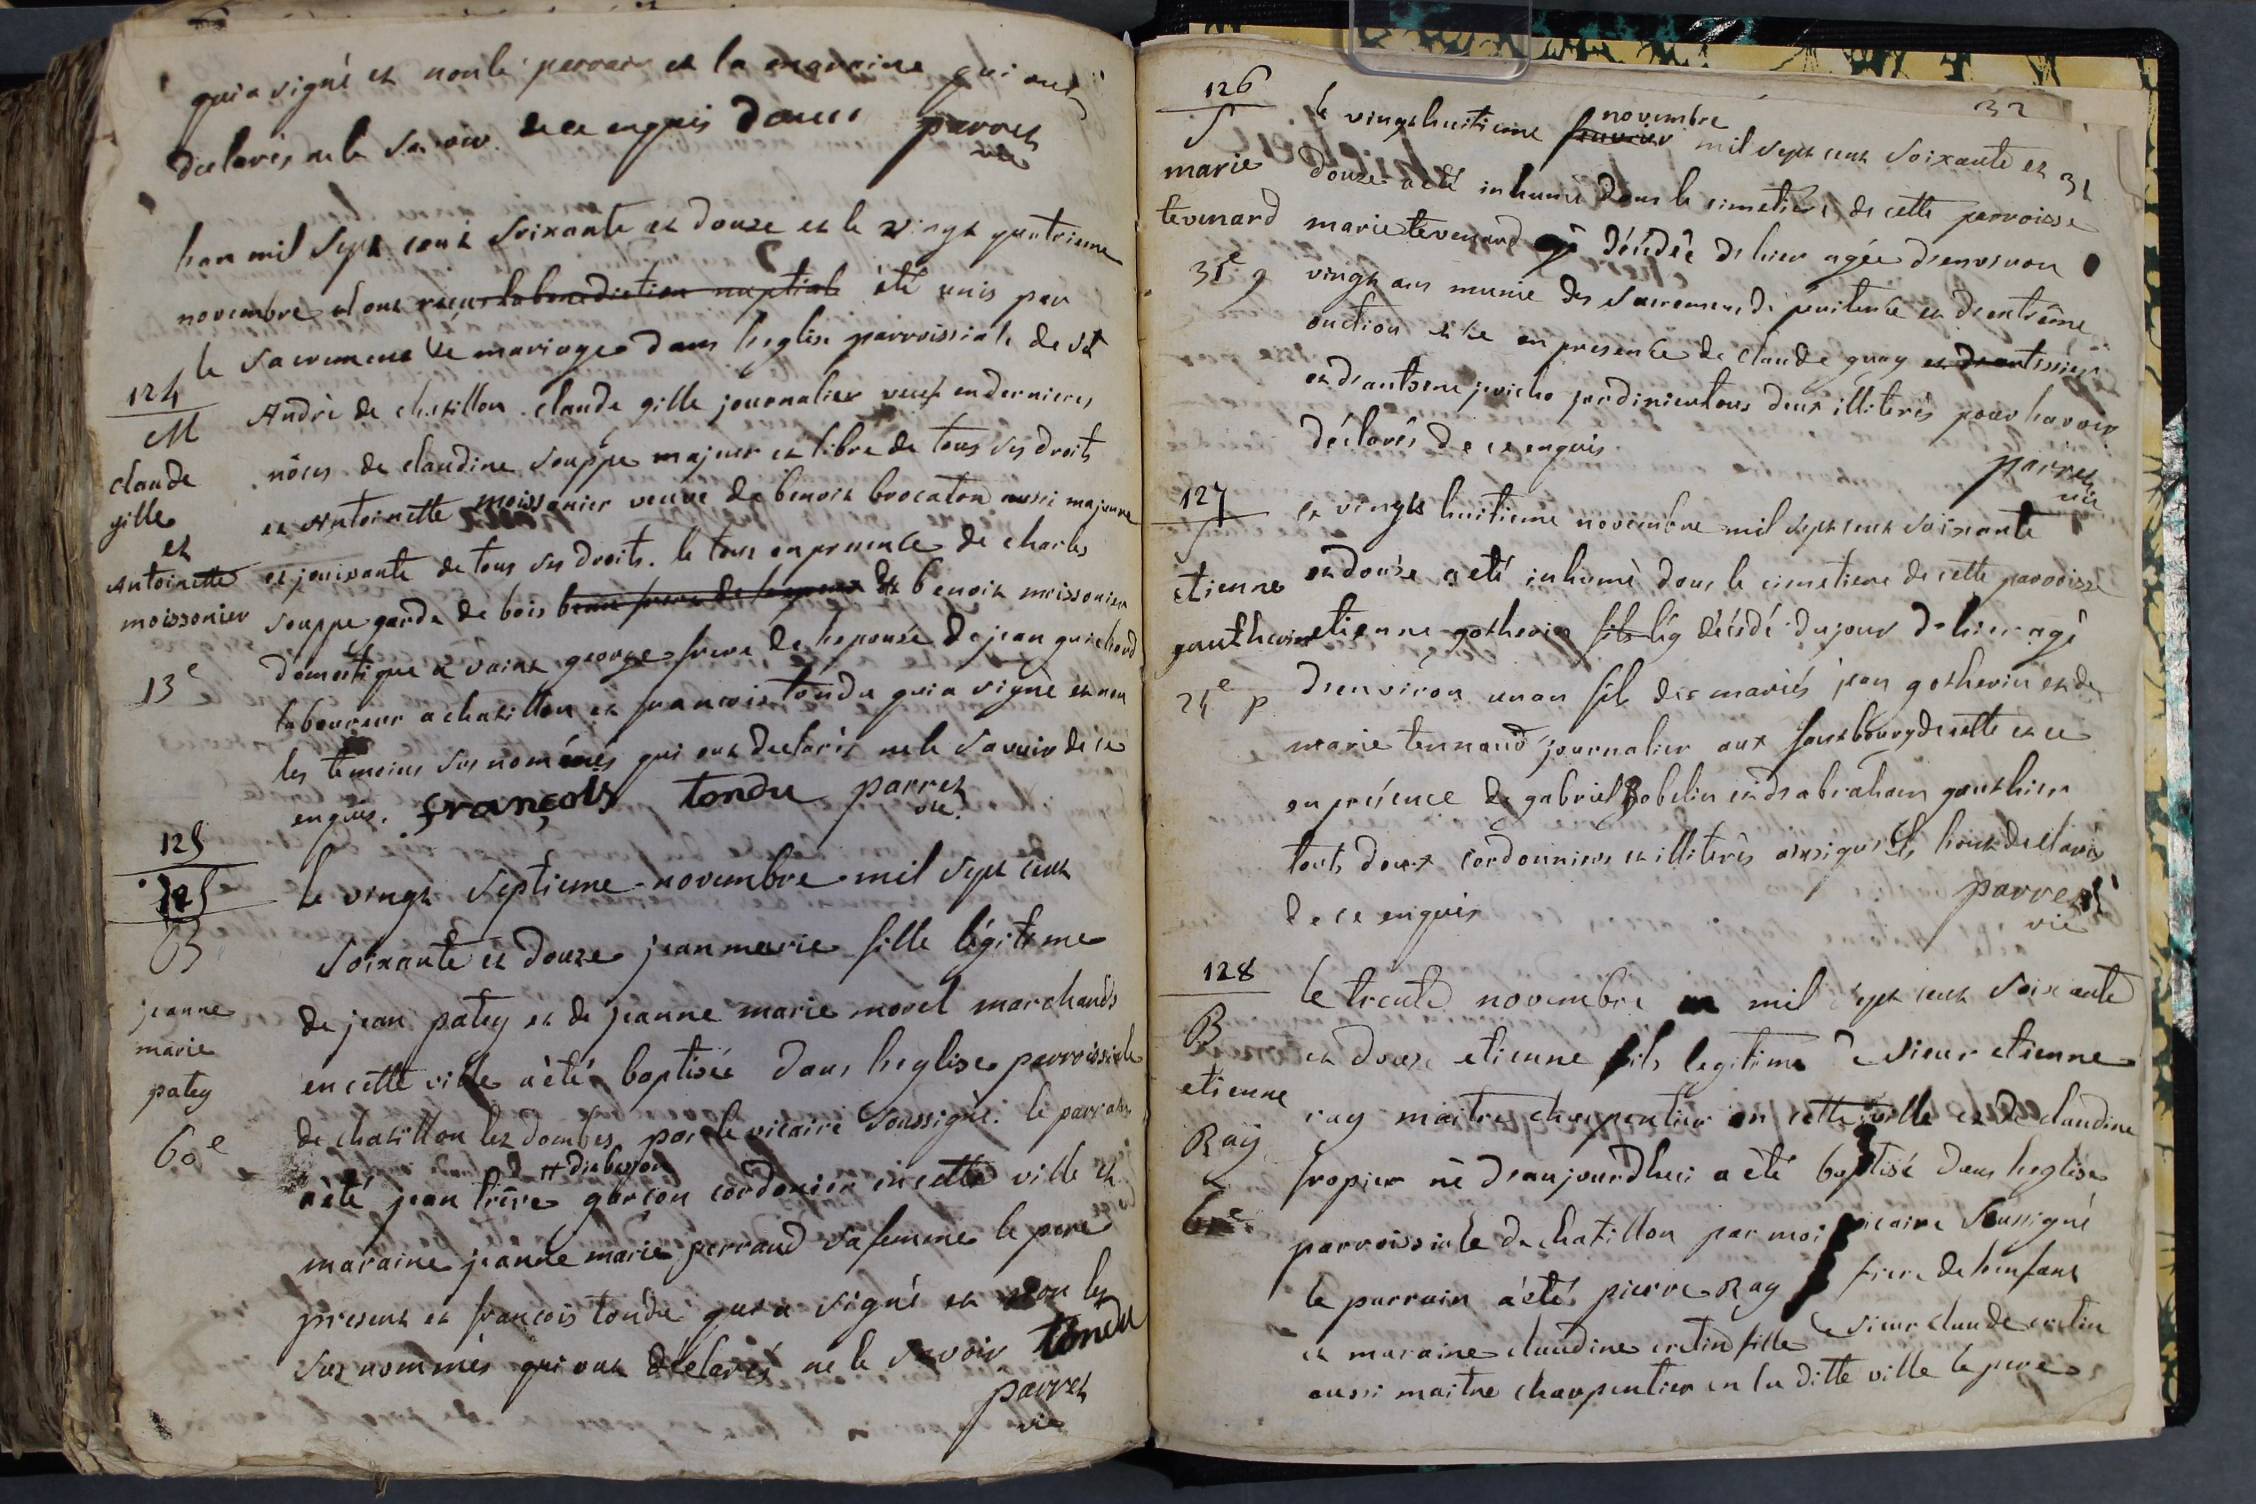 qui a signé et non le parrain et la marraine qui ont
declarés ne le savoir de ce enquis parret
vic
lan mil sept cent soixante et douze et le vingt quatrieme
novembre ont reçus la benediction nuptiale été unis par
le sacrement de mariage dans leglise parroissiale de st
André de chatillon claude gille journalier veuf en dernieres
nôces de claudine souppe majeur et libre de tous ses droits
et Antoinette moissonier veuve de benoit brocaton aussi majeure
et jouissante de tous ses droits. le tout en presence de charles
souppe garde de bois de benoit moissonier
domestique a saint george frere de lepouse de jean guichard
laboureur a chatillon et francois tondu qui a signé et non
les temoins sus nommés qui ont declarés ne le savoir de ce
enquis. françois tondu parret
vic
124
M
claude
gille
et
Antoinette
moissonier
13e
125
125
B
jeanne
marie
patey
60e
le vingt septieme novembre mil sept cent
soixante et douze jean marie fille légitime
de jean patey et de jeanne marie morel marchands
en cette ville a été baptisée dans leglise parroissiale
de chatillon les dombes par le vicaire soussigné. le parrain
a été jean garçon cordonier en cette ville et
maraine jeanne marie perraud sa femme le pere
present et francois tondu qui a signé et non les
sus nommés qui ont déclarés ne le savoir tondu
parret
vic
32
31
126
S
marie
tevenard
31e
le vingt huitieme novembre mil sept cent soixante et
douze a été inhumée dans le cimetiere de cette parroisse
marie tevenard décédée de hier agée denviron
vingt ans munie des sacremens de penitence et dextrême
onction et ce en presence de claude guay
et dantoine jardinier tous deux illiterés pour lavoir
déclarés de ce enquis
parret
vic
127
S
etienne
gautherin
24e p
le vingt huitieme novembre mil sept cent soixante
et douze a été inhumé dans le cimetiere de cette parroisse
etienne gotherin fils lég décédé du jour de hier agé
denviron un an fils des mariés jean gotherin et de
marie tennand journalier aux fauxbourg de cette et ce
en présence de gabriel gobelin et de abraham gauthier
touts deux cordonniers et illiterés ainsi quils lont declarés
de ce enquis parret
vic
128
B
etienne
Ray
61e
le trente novembre mil sept cent soixante
et douze etienne fils legitime de sieur etienne
ray maitre charpentier en cette ville et de claudine
fropier né daujourdhui a été baptisé dans leglise
parroissiale de chatillon par moi vicaire soussigné
le parrain a été pierre Ray frere de lenfant
et maraine claudine cretin fille de sieur claude cretin
aussi maitre charpentier en la ditte ville le pere